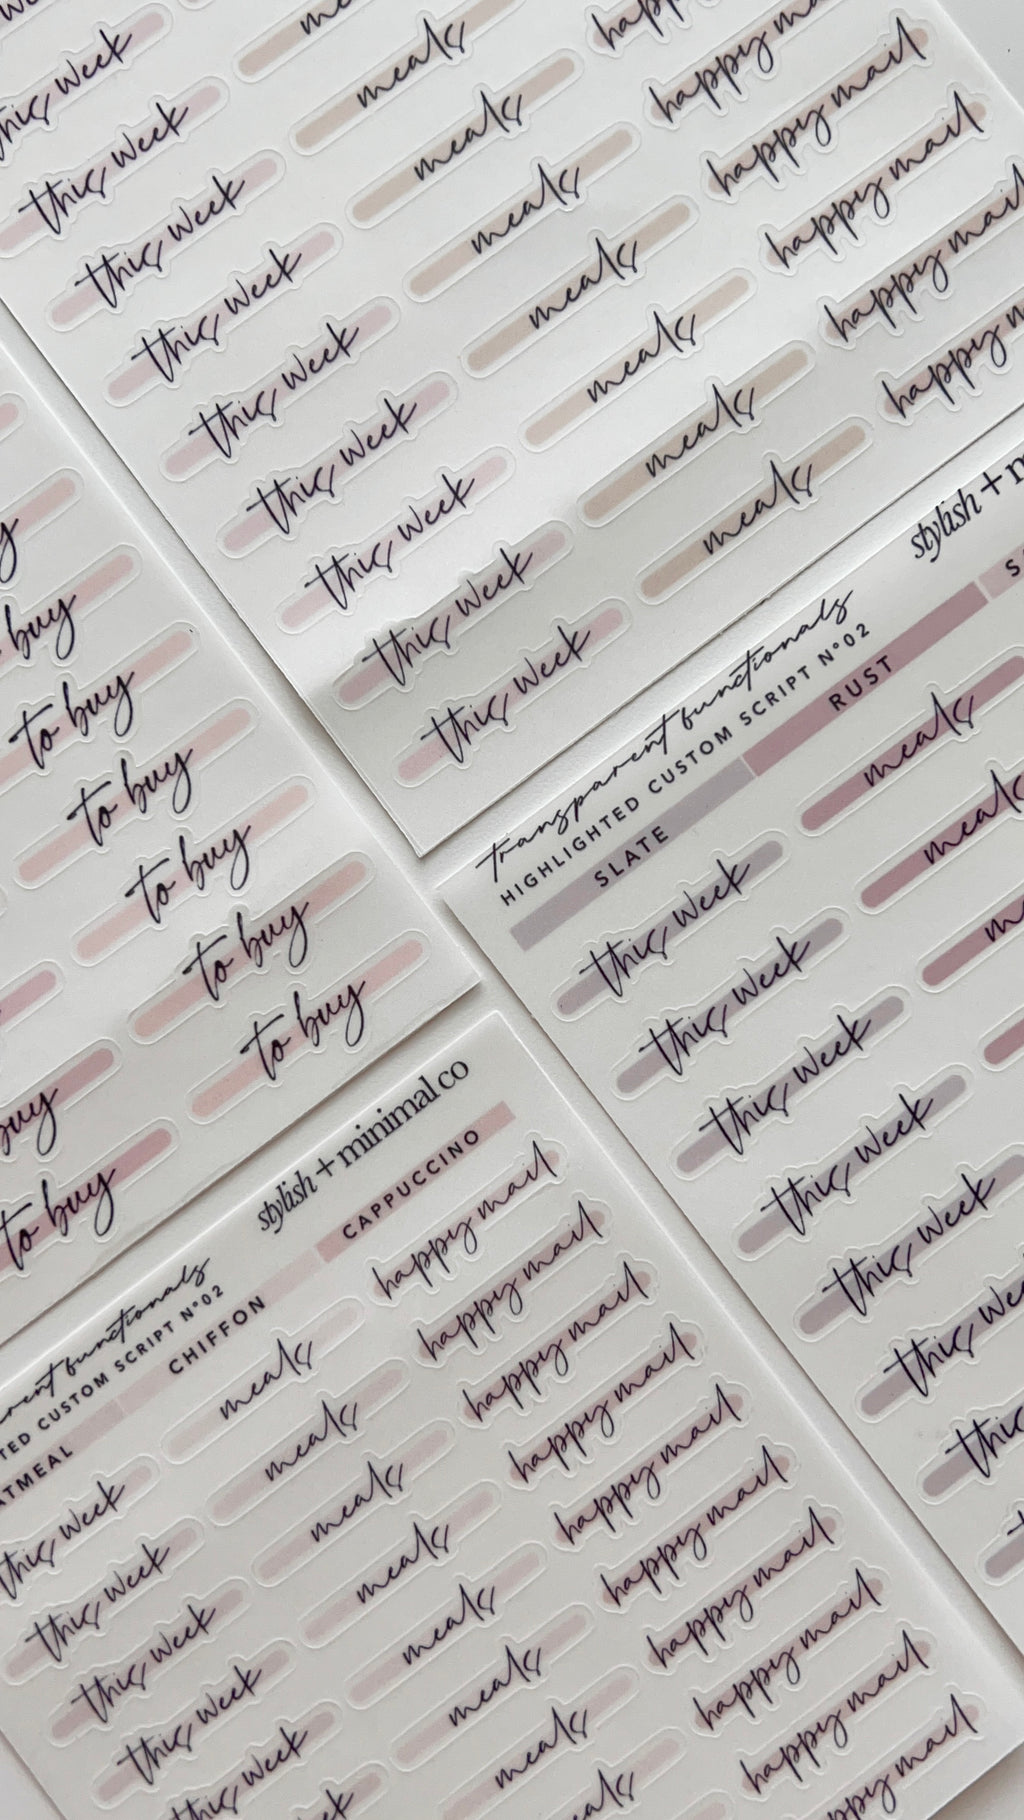 this week
this week
this week
this week
this week
this week
this week
this week
this week
meals
meals
meals
meals
meals
meals
meals
meals
happy
happy
happy mail
happy mail
happy mail
happy
buy
to buy
to buy
to buy
to buy
to buy
buy
to buy
stylish +
transparent functionals
HIGHLIGHTED CUSTOM SCRIPT Nº02
SLATE
RUST
this week
this week
this week
this week
this week
this
meals
meals
stylish + minimal co
functionals
CUSTOM SCRIPT Nº02
CHIFFON
CAPPUCCINO
this week
this week
this week
this week
this week
meals
meals
meals
meals
meals
meals
meals
meals
happy mail
happy mail
happy mail
happy mail
happy mail
happy mail
happy mail
happy mail
happy mail
happy mail